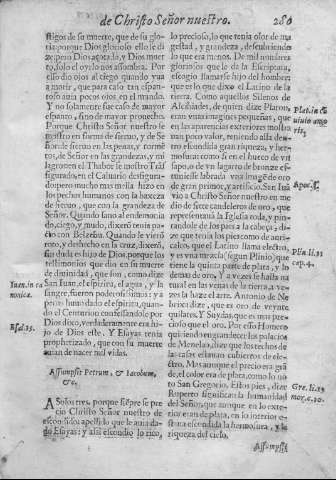 de Christo Señor nuestro. 280
stigos de su muerte, que de su glo
ria porque Dios glorioso ello se di
ze pero Dios açotado, y Dios muer
to, solo el oyrlo nos assombra. Por
esso dio ojos al ciego quando yua
a morir, que para caso tan espan-
toso auia pocos ojos en el mundo.
Y no solamente fue caso de mayor
espanto, sino de mayor prouecho.
Porque Christo Señor nuestro se
mostro en forma de sieruo, y de Se
ñor de sieruo en las penas, y tormē
tos, de Señor en las grandezas, y mi
lagros en el Thabor se mostro Trãs
figurado, en el Caluario desfigura-
do pero mucho mas mella hizo en
los pechos humanos con la baxeza
de sieruo, que con la grandeza de
Señor. Quando sano al endemonia
do, ciego, y mudo, dixerõ tenia pa-
cto con Belzebu. Quando le vierõ
roto, y deshecho en la cruz, dixerõ,
sin duda es hijo de Dios, porque los
testimonios que dio en su muerte
de diuinidad, que son, como dize
San Iuan, el espiritu, el agua, y la
sangre, fueron poderosissimos: y a
penas huuo dado el espiritu, quan-
do el Centurion confessandole por
Dios dixo, verdaderamente era hi-
jo de Dios este. Y Esayas tenia
prophetizado, que con su muerte
auian de nacer mil vidas.
Iuan. in ca
nonica.
Esa. 53.
Assumpsit Petrum, & Iacobum,
&c.
A Solos tres, porque siēpre se pre
cio Christo Señor nuestro de
escondido: apellido que le auia da-
do Esayas: y assi escondio lo rico,
lo precioso, lo que tenia olor de ma
gestad, y grandeza, descubriendo
lo que era menos. De mil nombres
gloriosos que le da la Escriptura,
escogio llamarse hijo del hombre:
que es lo que dixo el Latino de la
tierra. Como aquellos Silenos de
Alcibiades, de quien dize Platon,
eran vnas imagines pequeñas, que
en las apariencias exteriores mostra
uan poco valor, teniendo alla den-
tro escondida gran riqueza, y her-
mosura: como si en el hueco de vn
sapo, o de vn lagarto de bronze es-
tuuiesse labrada vna imagē de oro
de gran primor, y artificio. San Iuã
vio a Christo Señor nuestro en me
dio de siete candeleros de oro, que
representauã la Iglesia toda, y pin-
tandole de los pies a la cabeça, di-
ze que tenia los pies como de auri-
calco, que el Latino llama electro,
y es vna mezcla (segun Plinio) que
tiene la quinta parte de plata, y lo
demas de oro, y a vezes se halla na
tural en las venas de la tierra, a ve-
zes la haze el arte. Antonio de Ne
brixa dize, que es oro de veynte
quilates. Y Suydas, que es mas pre-
cioso que el oro. Por esso Homero
quiriendo engrandecer los palacios
de Menelao, dize que los techos de
las casas estauan cubiertos de elec-
tro. Mas aunque el precio era grã-
de, el color era de plata, como lo no
to San Gregorio. Estos pies, dize
Ruperto significan la humanidad
del Señor, que aunque en lo exte-
rior eran de plata, en lo interior
estaua escondida la hermosura, y la
riqueza del cielo.
Plat. in cõ
uiuio amo
ris.
Apoc. 1.
Plin. li. 33
cap. 4.
Assumpsit